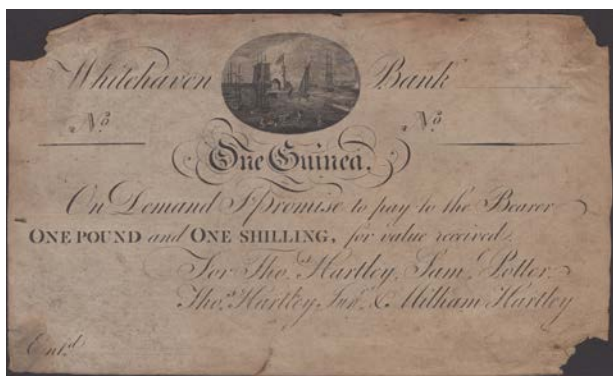 Whitehaven Bank
No. No.
One Guinea.
On Demand I promise to pay to the Bearer
ONE POUND and ONE SHILLING, for value received.
For Thos. Hartley, Saml. Potter
Thos. Hartley Junr. & Milham Hartley
Entd.